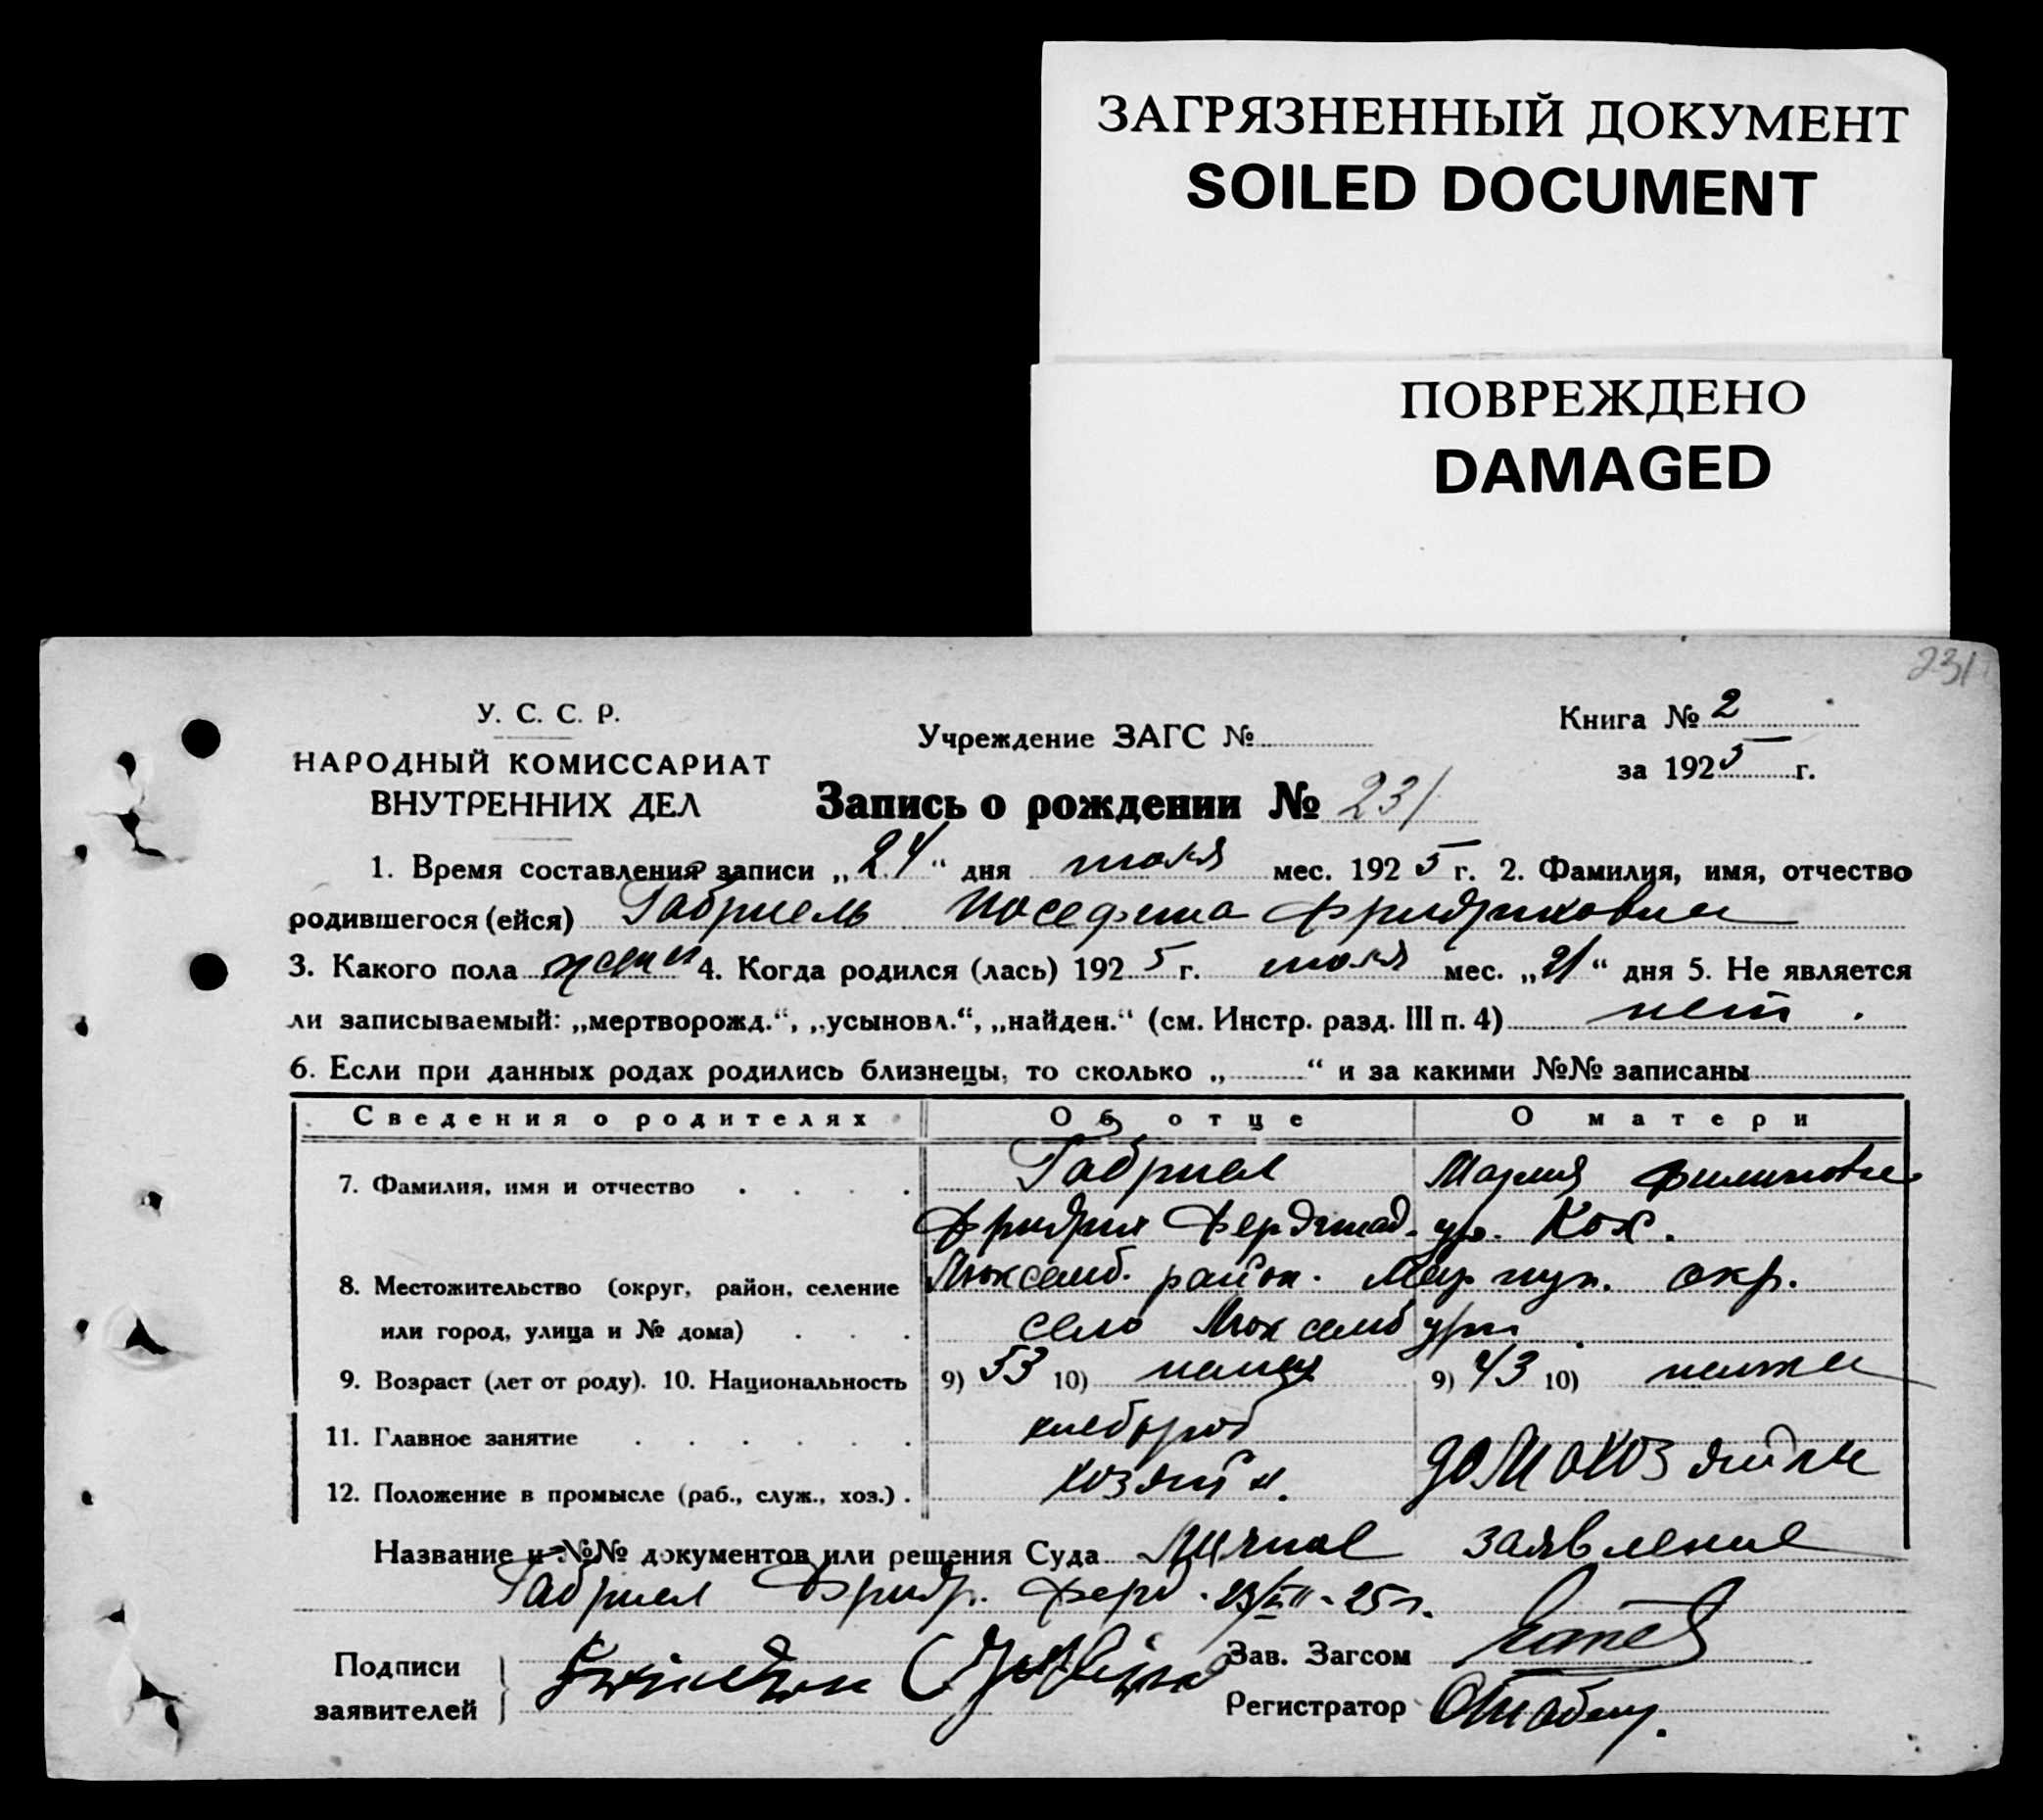 ЗАГРЯЗНЕННЫЙ ДОКУМЕНТ
SOILED DOCUMENT
ПОВРЕЖДЕНО
DAMAGED
231
У. С. С. Р.
НАРОДНЫЙ КОМИССАРИАТ
ВНУТРЕННИХ ДЕЛ
Учреждение ЗАГС №
Книга № 2
за 1925 г.
Запись о рождении № 231
1. Время составления записи „24“ дня июля мес. 1925 г. 2. Фамилия, имя, отчество
родившегося (ейся) Габриель Иосефина Фридриховна
3. Какого пола женск 4. Когда родился (лась) 1925 г. июля мес. „21“ дня 5. Не является
ли записываемый: „мертворожд.“, „усыновл.“, „найден.“ (см. Инстр. разд. III п. 4) нет.
6. Если при данных родах родились близнецы, то сколько „ “ и за какими №№ записаны
Сведения о родителях Об отце О матери
7. Фамилия, имя и отчество Габриел Мария Филиповна
Фридрих Фердинад. ур. Кох.
8. Местожительство (округ, район, селение Люксемб. район. Мариуп. окр.
или город, улица и № дома) село Люксембург.
9. Возраст (лет от роду). 10. Национальность 9) 53 10) немец 9) 43 10) немка
11. Главное занятие хлебороб
12. Положение в промысле (раб., служ., хоз.) хозяин. домохозяйка
Название и №№ документов или решения Суда Личное заявление
Габриел Фридр. Ферд. 23/VII-25 г.
Подписи
заявителей
Зав. Загсом
Регистратор